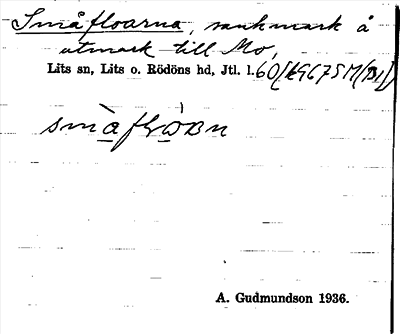 Småfloarna, sankmark å
utmark till Mo,
Lits sn, Lits o. Rödöns hd, Jtl. l.
A. Gudmundson 1936.